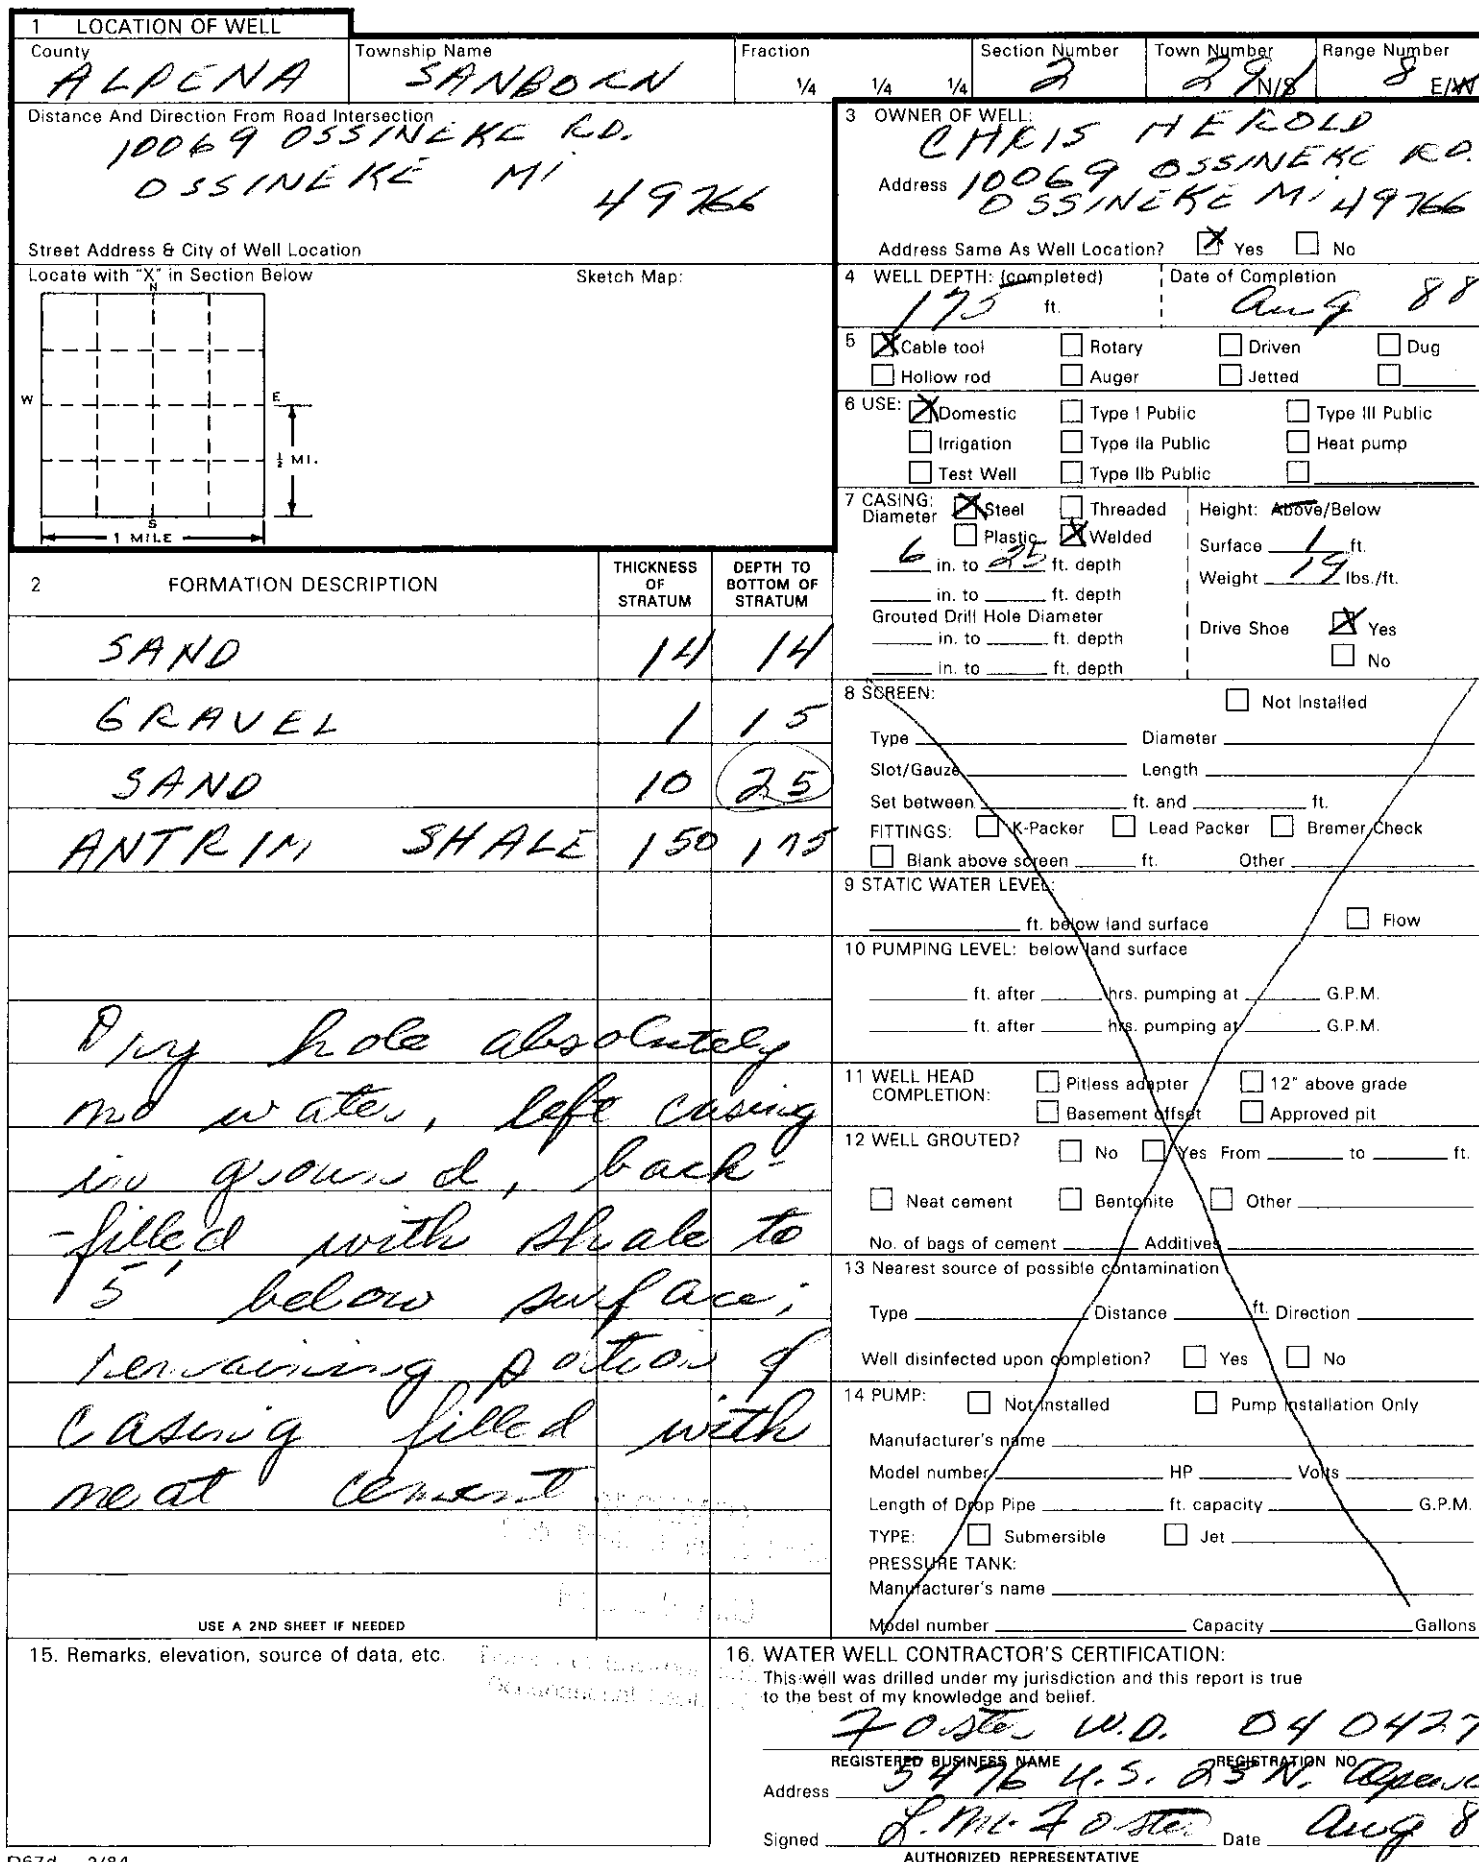 1 LOCATION OF WELL
County Township Name Fraction Section Number Town Number Range Number
ALPENA SANBORN 1/4 1/4 1/4 2 29 N/S 8 E/W
Distance And Direction From Road Intersection
10069 OSSINEKE RD.
OSSINEKE MI
49766
Street Address & City of Well Location
Locate with "X" in Section Below Sketch Map:
N
W E
1/2 MI.
S
1 MILE
3 OWNER OF WELL:
CHRIS HEROLD
Address 10069 OSSINEKE RD.
OSSINEKE MI 49766
Address Same As Well Location? X Yes No
4 WELL DEPTH: (completed) Date of Completion
175 ft. Aug 88
5 X Cable tool Rotary Driven Dug
Hollow rod Auger Jetted
6 USE: X Domestic Type I Public Type III Public
Irrigation Type IIa Public Heat pump
Test Well Type IIb Public
7 CASING: X Steel Threaded Height: Above/Below
Diameter Plastic X Welded
Surface 1 ft.
6 in. to 25 ft. depth
Weight 19 lbs./ft.
in. to ft. depth
Grouted Drill Hole Diameter
in. to ft. depth
Drive Shoe X Yes
in. to ft. depth
No
2 FORMATION DESCRIPTION THICKNESS OF STRATUM DEPTH TO BOTTOM OF STRATUM
SAND 14 14
GRAVEL 1 15
SAND 10 25
ANTRIM SHALE 150 175
Dry hole absolutely
no water, left casing
in ground, back-
-filled with shale to
5' below surface;
remaining portion of
casing filled with
neat cement
USE A 2ND SHEET IF NEEDED
8 SCREEN: Not Installed
Type Diameter
Slot/Gauze Length
Set between ft. and ft.
FITTINGS: K-Packer Lead Packer Bremer Check
Blank above screen ft. Other
9 STATIC WATER LEVEL:
ft. below land surface Flow
10 PUMPING LEVEL: below land surface
ft. after hrs. pumping at G.P.M.
ft. after hrs. pumping at G.P.M.
11 WELL HEAD COMPLETION: Pitless adapter 12" above grade
Basement offset Approved pit
12 WELL GROUTED? No Yes From to ft.
Neat cement Bentonite Other
No. of bags of cement Additives
13 Nearest source of possible contamination
Type Distance ft. Direction
Well disinfected upon completion? Yes No
14 PUMP: Not Installed Pump Installation Only
Manufacturer's name
Model number HP Volts
Length of Drop Pipe ft. capacity G.P.M.
TYPE: Submersible Jet
PRESSURE TANK:
Manufacturer's name
Model number Capacity Gallons
15. Remarks, elevation, source of data, etc.
16. WATER WELL CONTRACTOR'S CERTIFICATION:
This well was drilled under my jurisdiction and this report is true
to the best of my knowledge and belief.
Foster W.D. 04 0427
REGISTERED BUSINESS NAME REGISTRATION NO.
Address 5476 U.S. 23 N. Alpena
Signed L. M. Foster Date Aug 8
AUTHORIZED REPRESENTATIVE
D67d 2/84